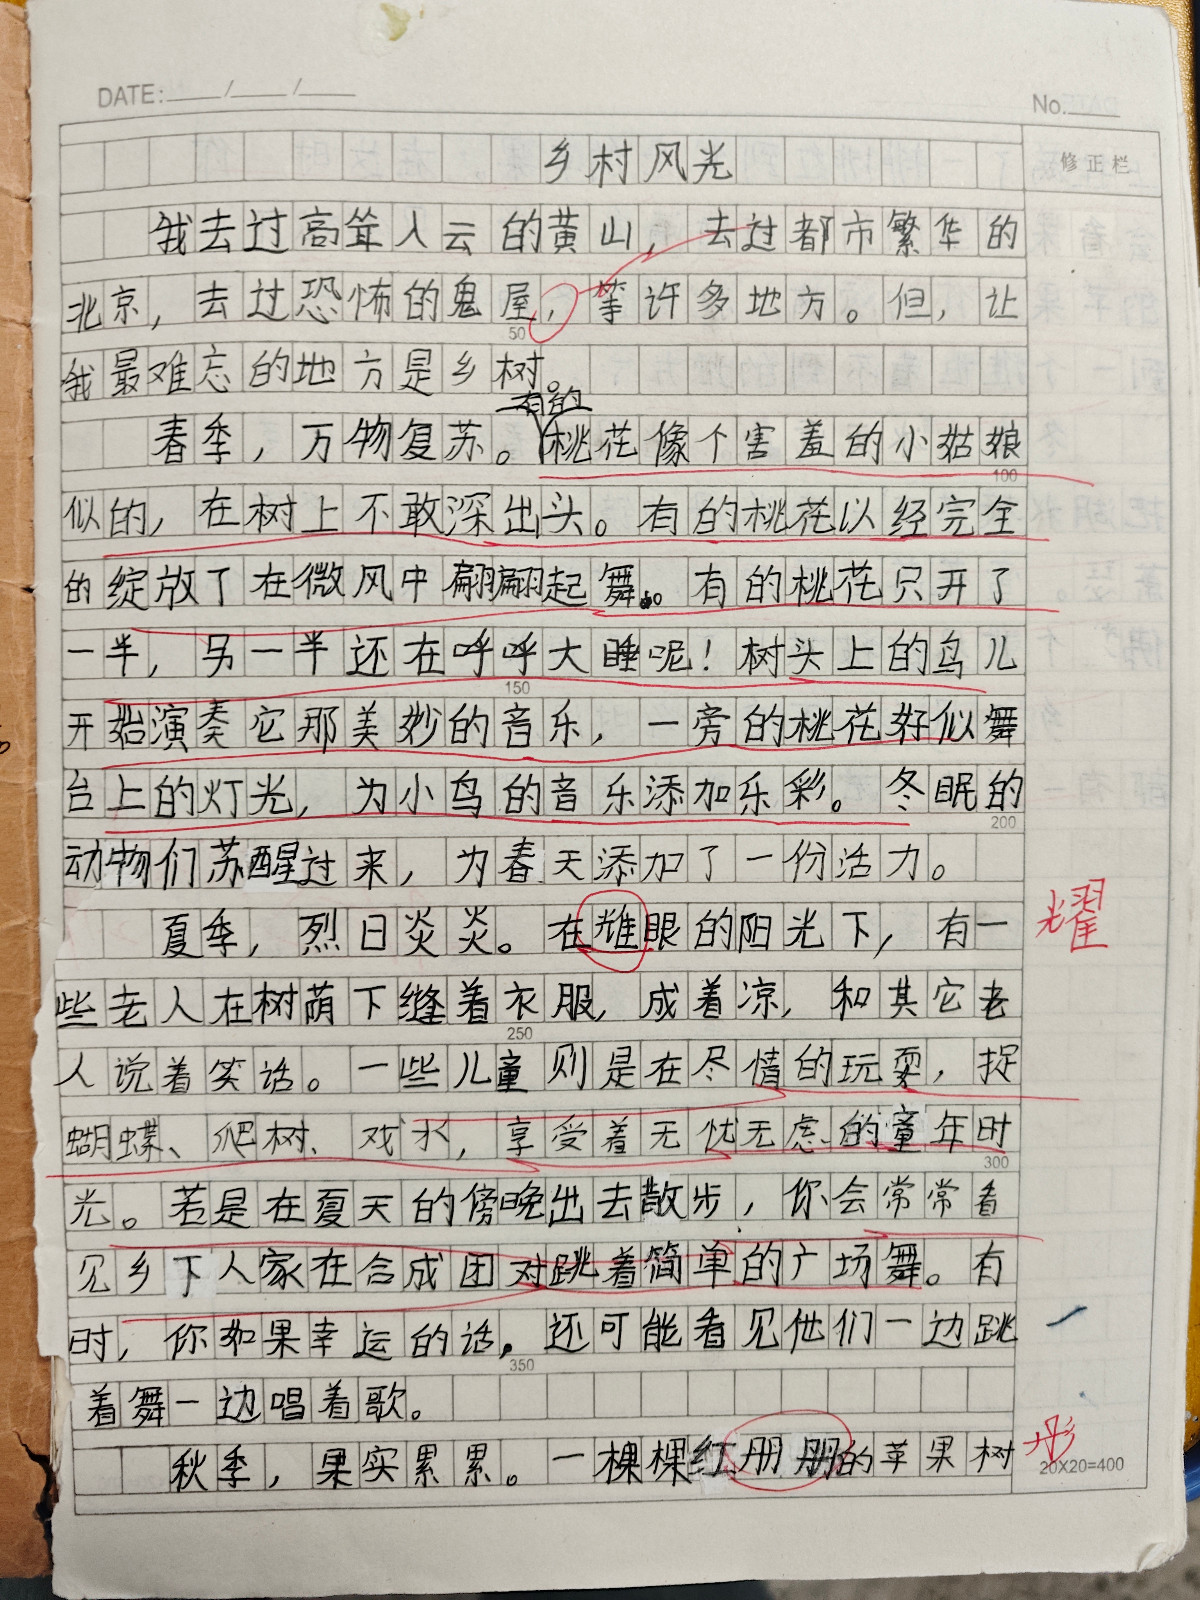 DATE: ___/___/___
No.
修正栏
乡村风光
我去过高耸入云的黄山，去过都市繁华的
北京，去过恐怖的鬼屋，等许多地方。但，让
50
我最难忘的地方是乡树。
有的
春季，万物复苏。桃花像个害羞的小姑娘
100
似的，在树上不敢深出头。有的桃花以经完全
的绽放了在微风中翩翩起舞。有的桃花只开了
一半，另一半还在呼呼大睡呢！树头上的鸟儿
150
开始演奏它那美妙的音乐，一旁的桃花好似舞
台上的灯光，为小鸟的音乐添加乐彩。冬眠的
200
动物们苏醒过来，为春天添加了一份活力。
夏季，烈日炎炎。在眼的阳光下，有一
耀
些老人在树荫下缝着衣服，成着凉，和其它老
250
人说着笑话。一些儿童则是在尽情的玩耍，捉
蝴蝶、爬树、戏水，享受着无忧无虑的童年时
300
光。若是在夏天的傍晚出去散步，你会常常看
见乡下人家在合成团对跳着简单的广场舞。有
时，你如果幸运的话，还可能看见他们一边跳
350
着舞一边唱着歌。
秋季，果实累累。一棵棵红册册的苹果树
彤
20X20=400